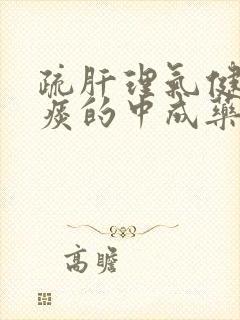 疏肝理氣健
痰的中成藥
高瞻